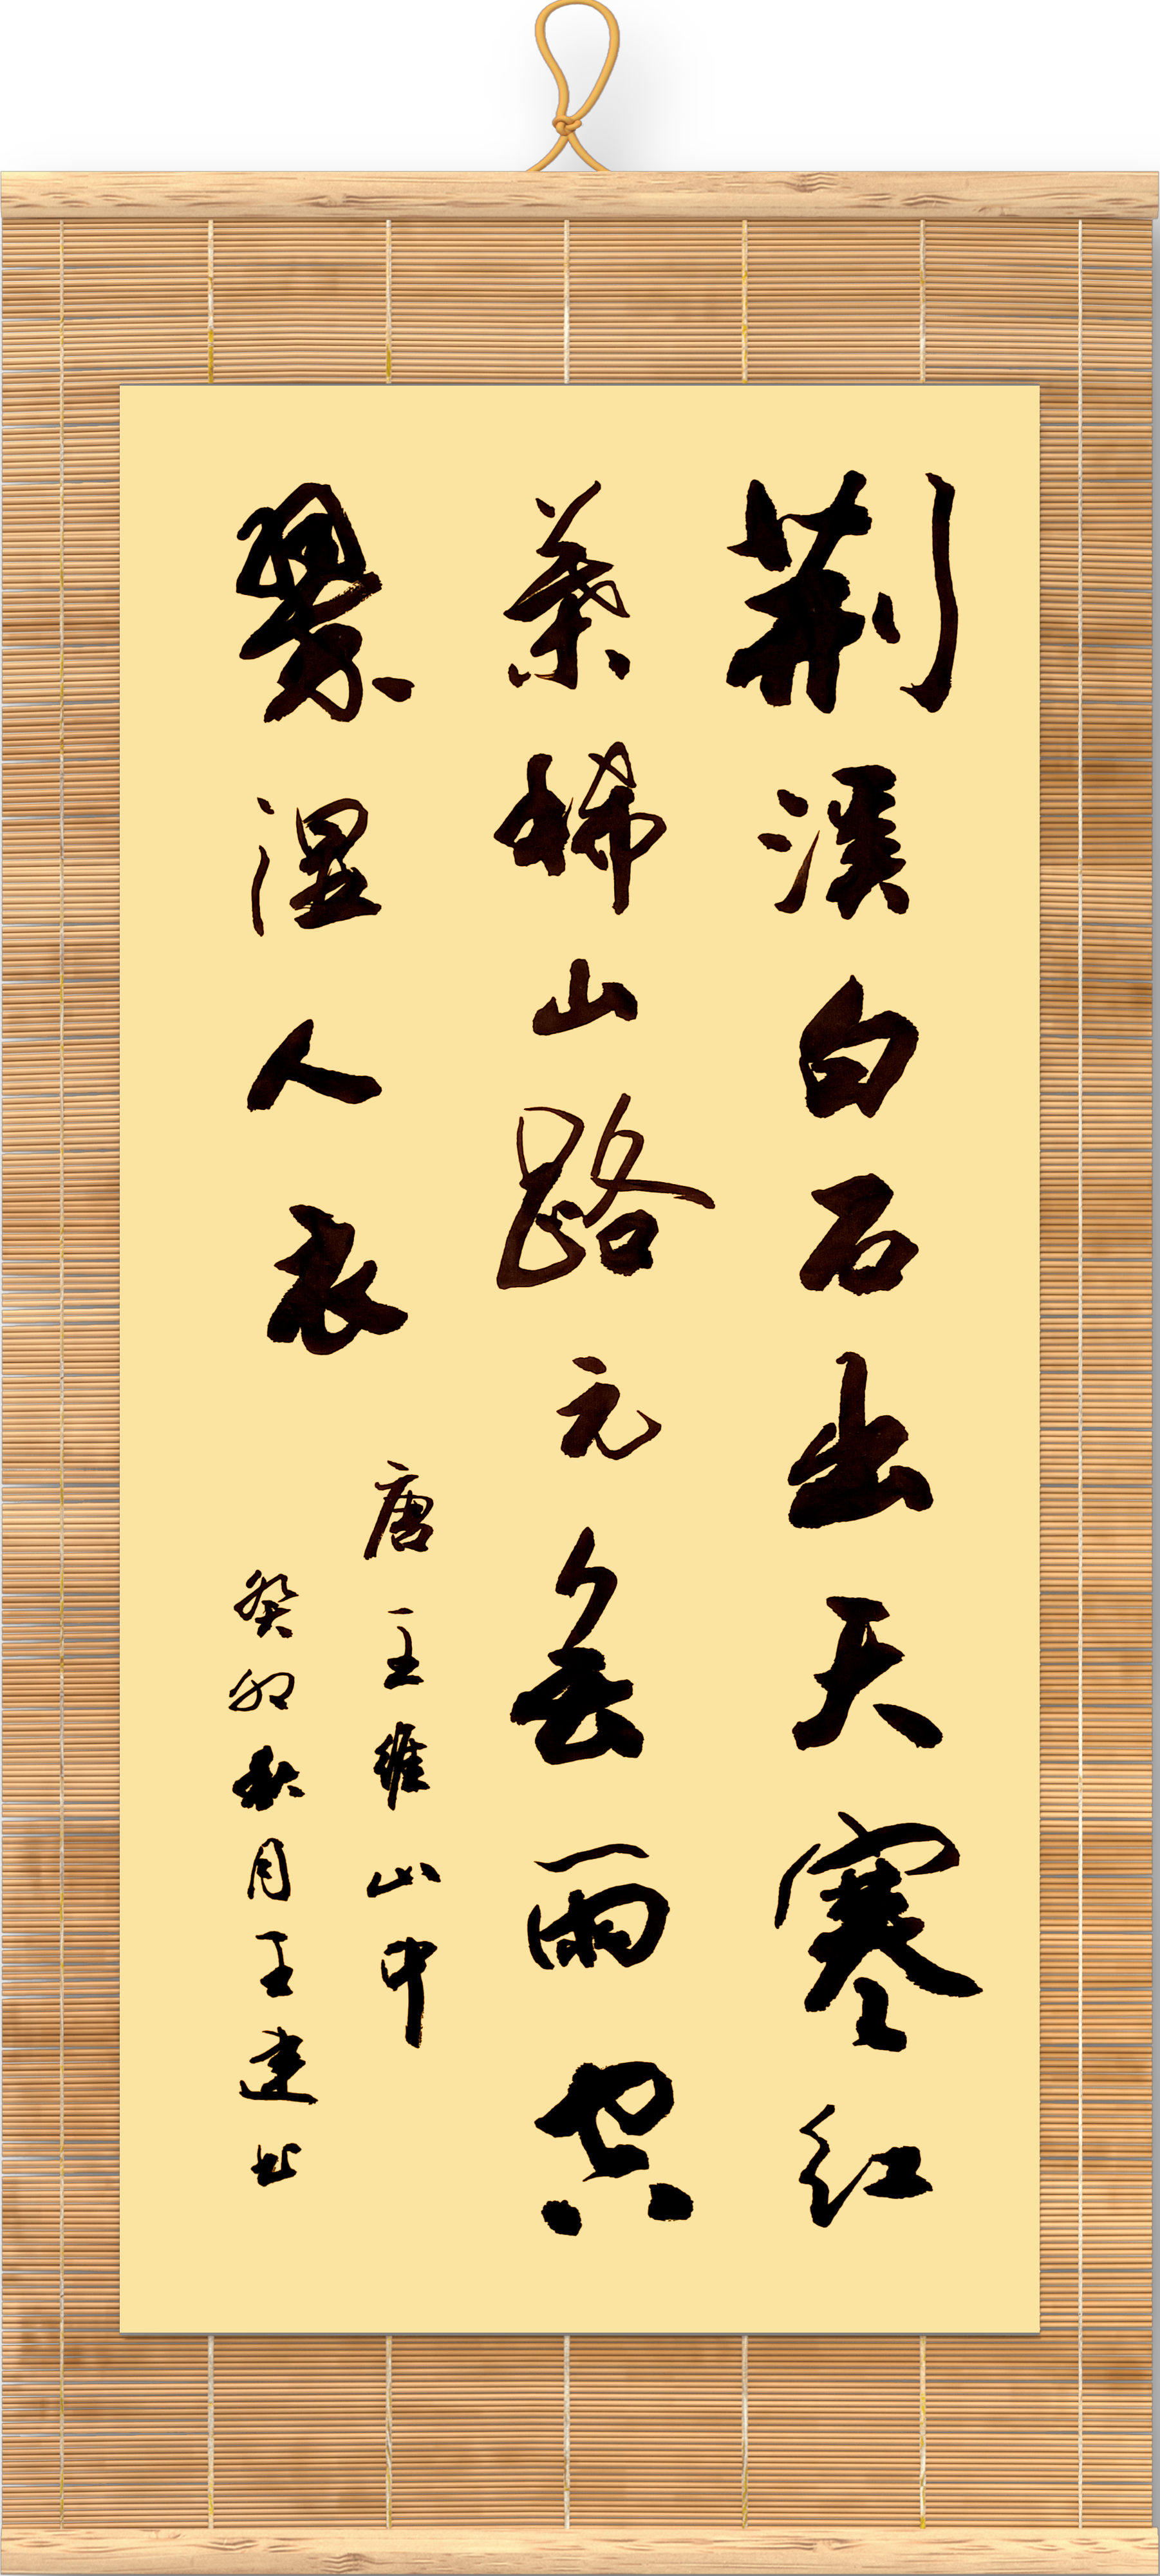 荆溪白石出天寒红
葉稀山路元無雨空
翠湿人衣
唐王维山中
癸卯秋月王建书